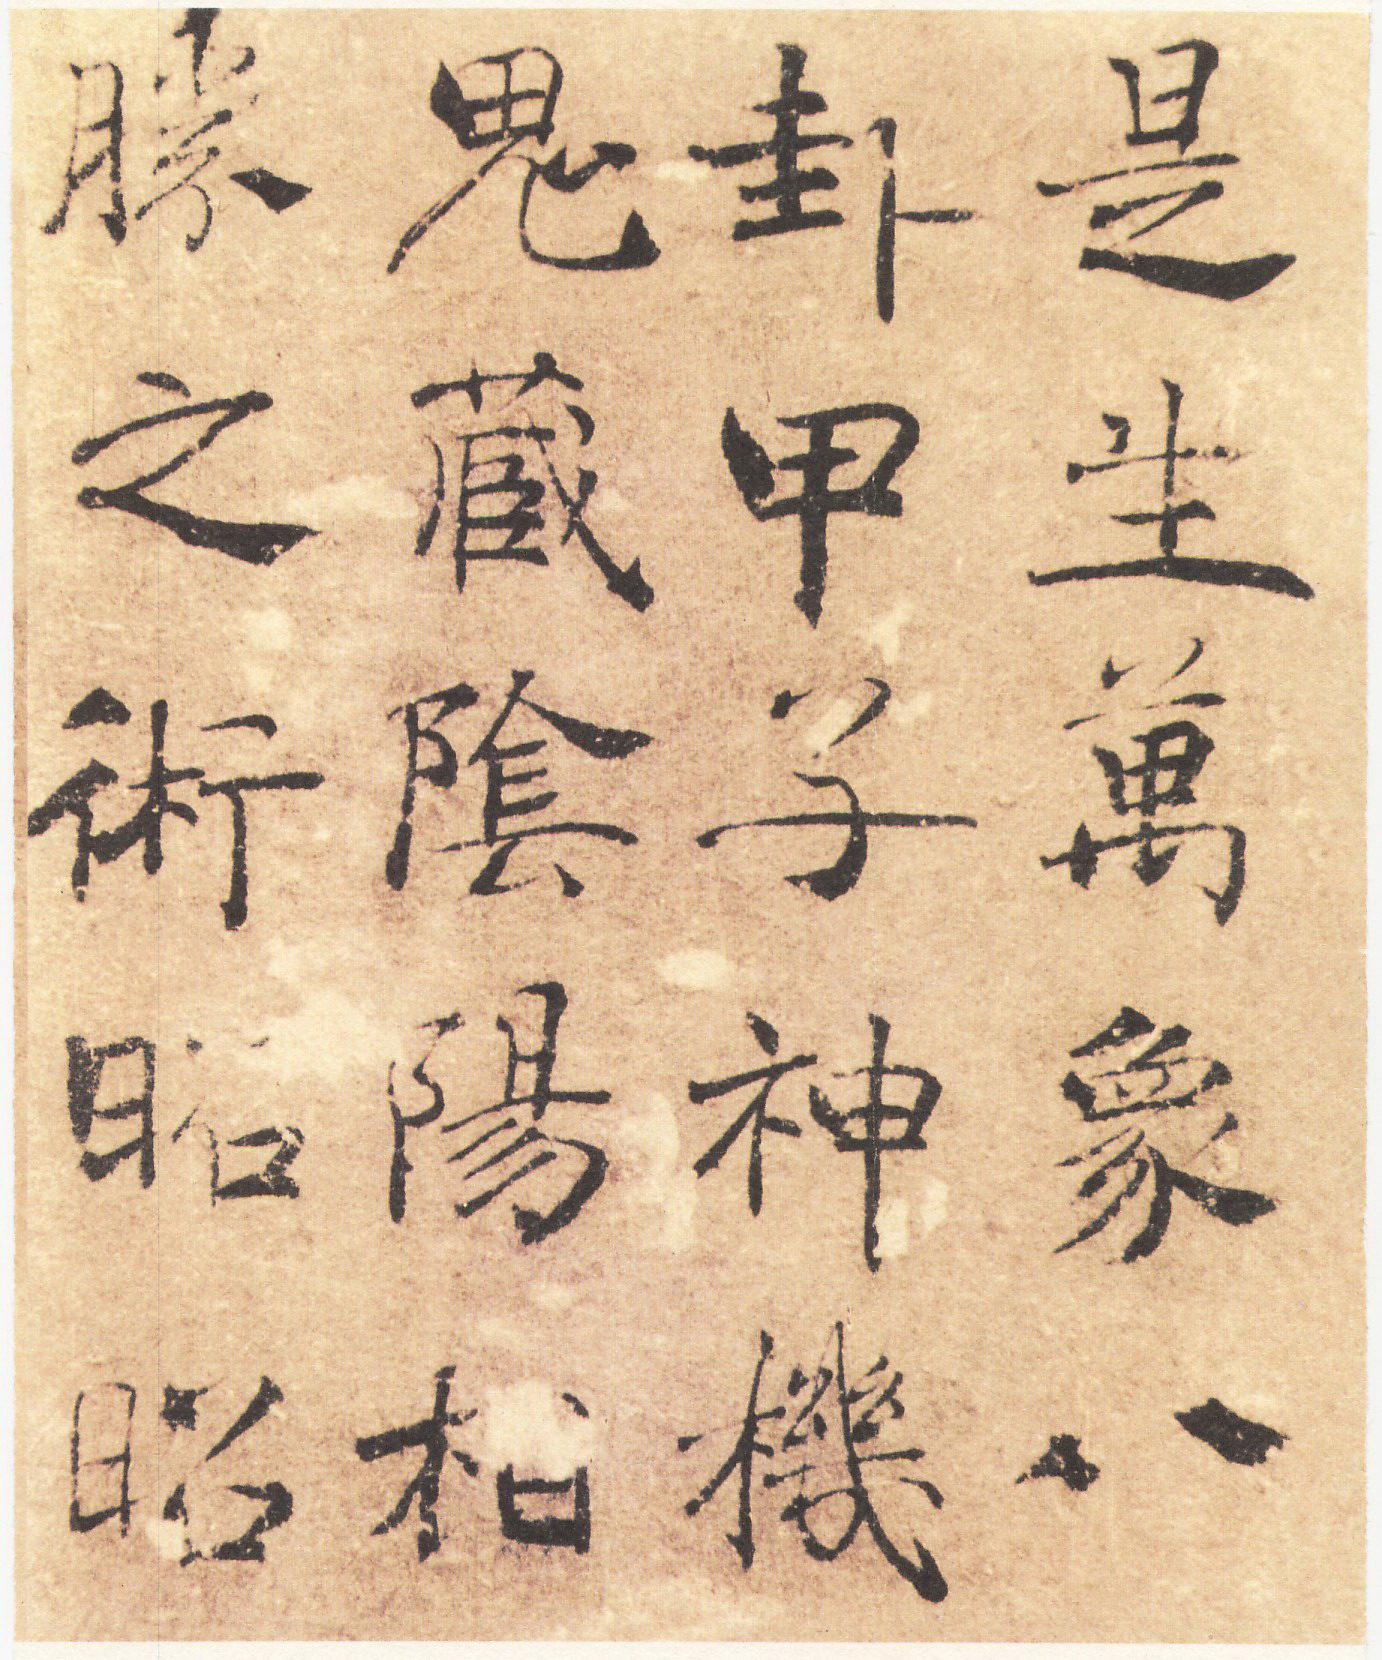 是生萬象八
卦甲子神機
鬼蔵陰陽相
勝之術昭昭